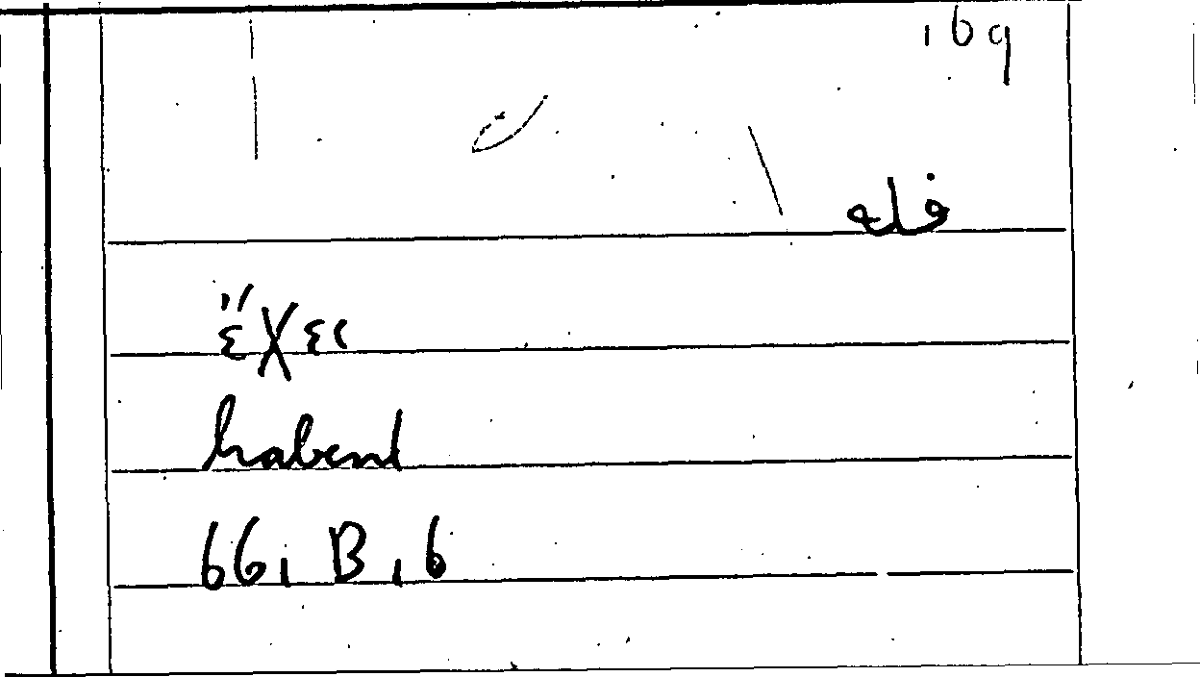 169
فله
ἔχει
habent
661 B 16